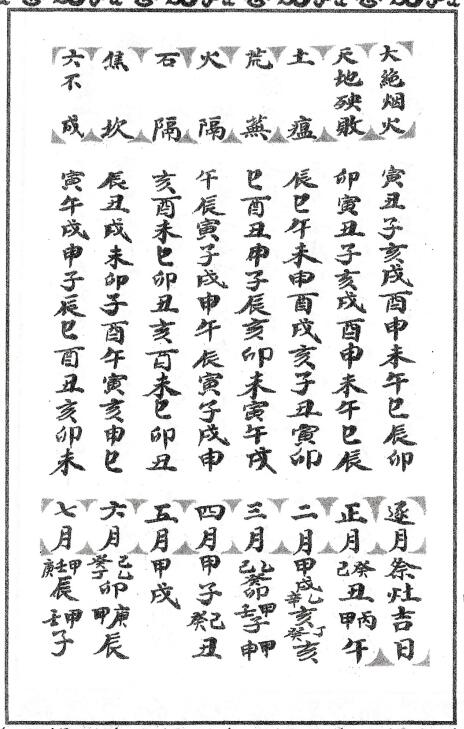 大絶烟火 寅丑子亥戌酉申未午巳辰卯
天地殃敗 卯寅丑子亥戌酉申未午巳辰
土瘟 辰巳午未申酉戌亥子丑寅卯
荒蕪 巳酉丑申子辰亥卯未寅午戌
火隔 午辰寅子戌申午辰寅子戌申
石隔 亥酉未巳卯丑亥酉未巳卯丑
焦坎 辰丑戌未卯子酉午寅亥申巳
六不成 寅午戌申子辰巳酉丑亥卯未
逐月祭灶吉日
正月癸己丑丙甲午
二月甲戌乙辛亥丁癸亥
三月乙癸己卯甲壬子甲申
四月甲子己癸丑
五月甲戌
六月己乙癸丁卯庚甲辰
七月甲壬庚辰甲壬子